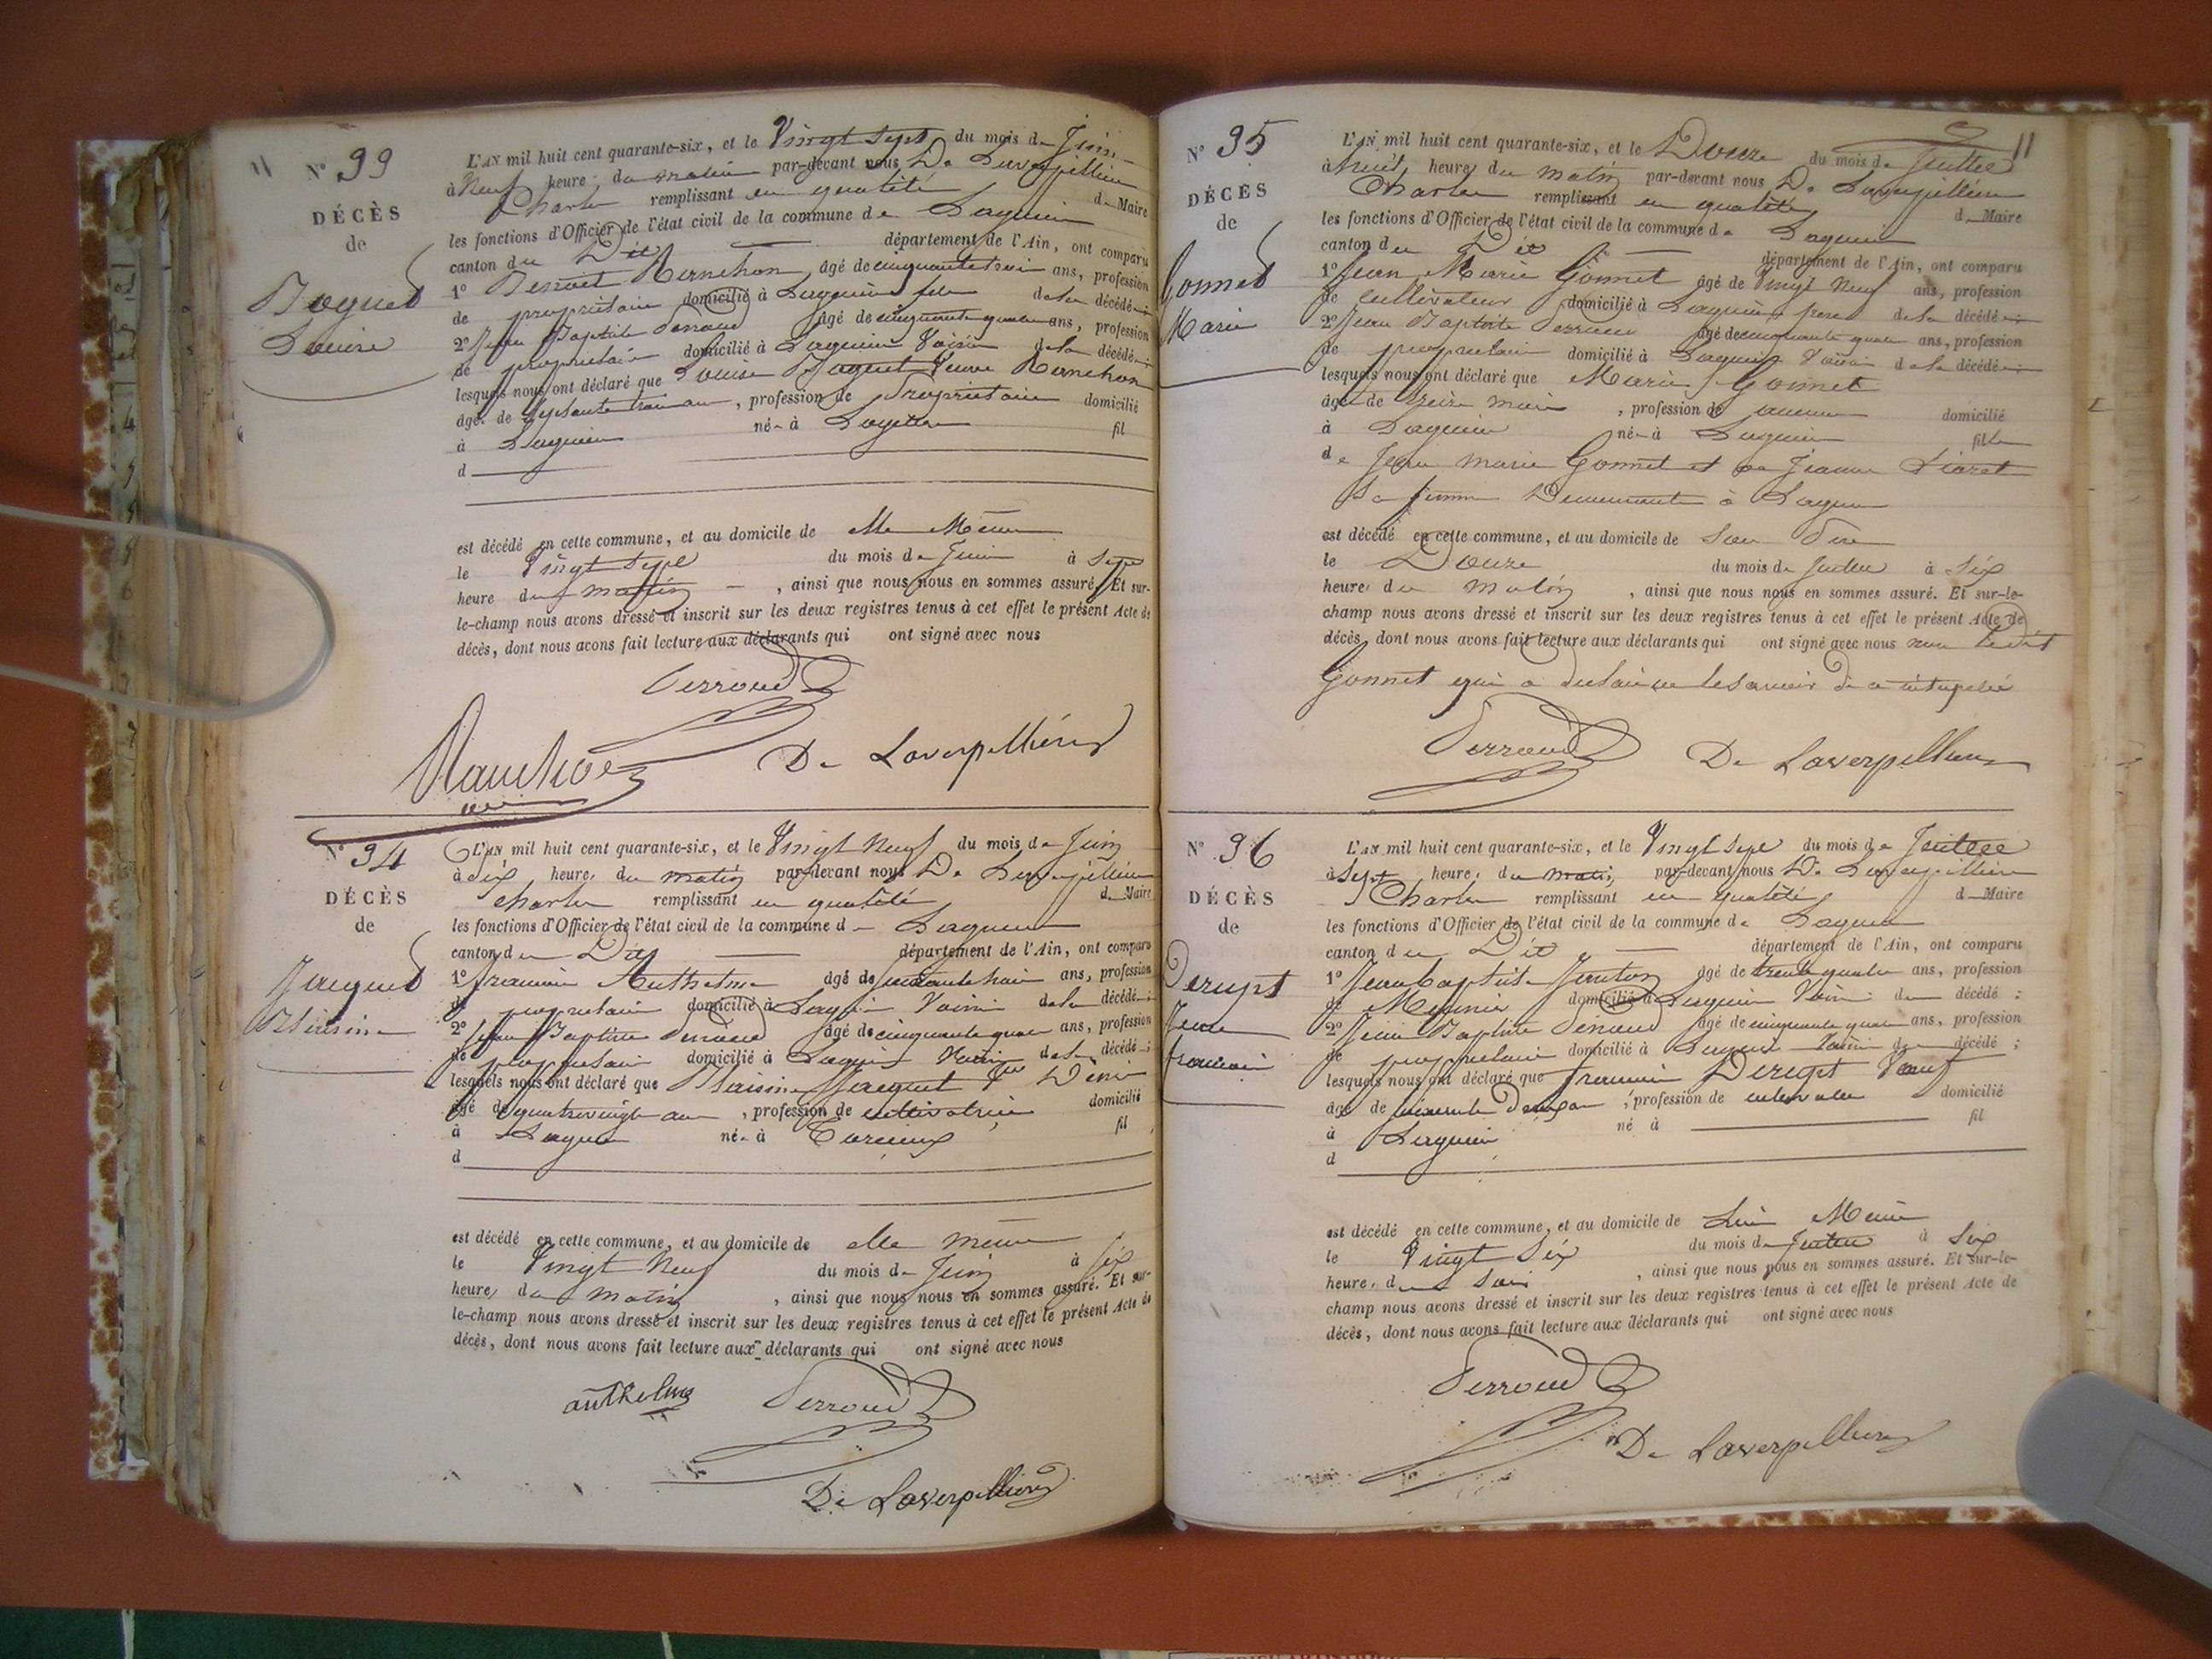 N° 33
DÉCÈS
de
Boguet
Louise
L'AN mil huit cent quarante-six, et le Vingt sept du mois de Juin
à Neuf heure du matin par-devant nous De Laverpillière
Charles remplissant en qualité de Maire
les fonctions d'Officier de l'état civil de la commune de Lagnieu
canton du Dit département de l'Ain, ont comparu
1° Benoit Ranchon âgé de cinquante trois ans, profession
de propriétaire domicilié à Lagnieu fils de la décédée
2° Jean Baptiste Perroud âgé de cinquante quatre ans, profession
de propriétaire domicilié à Lagnieu Voisin de la décédée
lesquels nous ont déclaré que Louise Boguet Veuve Ranchon
âgé de ans, profession de Propriétaire domicilié
à Lagnieu né à Loyettes fil
d
est décédé en cette commune, et au domicile de elle Même
le Vingt Sept du mois de Juin à Sept
heure du matin, ainsi que nous nous en sommes assuré. Et sur-
le-champ nous avons dressé et inscrit sur les deux registres tenus à cet effet le présent Acte de
décès, dont nous avons fait lecture aux déclarants qui ont signé avec nous
Perroud
Ranchon De Laverpillière
N° 34
DÉCÈS
de
Jacquet
L'AN mil huit cent quarante-six, et le Vingt Neuf du mois de Juin
à dix heure du matin par-devant nous De Laverpillière
Charles remplissant en qualité de Maire
les fonctions d'Officier de l'état civil de la commune d Lagnieu
canton du Dit département de l'Ain, ont comparu
1° François Anthelme âgé de ans, profession
de propriétaire domicilié à Lagnieu Voisin de la décédée
2° Jean Baptiste Perroud âgé de cinquante quatre ans, profession
de propriétaire domicilié à Lagnieu Voisin de la décédée
lesquels nous ont déclaré que Jacquet Vve
âgé de quatre vingts ans, profession de cultivatrice domicilié
à Lagnieu né à fil
d
est décédé en cette commune, et au domicile de elle même
le Vingt Neuf du mois de Juin à six
heure du matin, ainsi que nous nous en sommes assuré. Et sur-
le-champ nous avons dressé et inscrit sur les deux registres tenus à cet effet le présent Acte de
décès, dont nous avons fait lecture aux déclarants qui ont signé avec nous
anthelme Perroud
De Laverpillière
11
N° 35
DÉCÈS
de
Gonnet
Marie
L'AN mil huit cent quarante-six, et le Douze du mois de Juillet
à huit heure du matin par-devant nous De Laverpillière
Charles remplissant en qualité de Maire
les fonctions d'Officier de l'état civil de la commune de Lagnieu
canton du Dit département de l'Ain, ont comparu
1° Jean Marie Gonnet âgé de Vingt Neuf ans, profession
de cultivateur domicilié à Lagnieu père de la décédée
2° Jean Baptiste Perroud âgé de cinquante quatre ans, profession
de propriétaire domicilié à Lagnieu Voisin de la décédée
lesquels nous ont déclaré que Marie Gonnet
âgé de mois, profession de aucune domicilié
à Lagnieu né à Lagnieu fille
de Jean Marie Gonnet et de Jeanne
Sa femme Demeurant à Lagnieu
est décédé en cette commune, et au domicile de Son Père
le Douze du mois de Juillet à Six
heure du matin, ainsi que nous nous en sommes assuré. Et sur-le-
champ nous avons dressé et inscrit sur les deux registres tenus à cet effet le présent Acte de
décès, dont nous avons fait lecture aux déclarants qui ont signé avec nous non ledit
Gonnet qui a déclaré ne le savoir de ce interpelé
Perroud De Laverpillière
N° 36
DÉCÈS
de
Derupt
Jean
François
L'AN mil huit cent quarante-six, et le Vingt Sept du mois de Juillet
à Sept heure du matin par-devant nous De Laverpillière
Charles remplissant en qualité de Maire
les fonctions d'Officier de l'état civil de la commune de Lagnieu
canton du Dit département de l'Ain, ont comparu
1° Jean baptiste âgé de trente quatre ans, profession
de Meunier domicilié à Lagnieu Voisin du décédé ;
2° Jean Baptiste Perroud âgé de cinquante quatre ans, profession
de propriétaire domicilié à Lagnieu Voisin du décédé ;
lesquels nous ont déclaré que François Derupt Veuf
âgé de ans, profession de cultivateur domicilié
à Lagnieu né à fil
d
est décédé en cette commune, et au domicile de Lui Même
le Vingt Six du mois de Juillet à Six
heure du Soir, ainsi que nous nous en sommes assuré. Et sur-le-
champ nous avons dressé et inscrit sur les deux registres tenus à cet effet le présent Acte de
décès, dont nous avons fait lecture aux déclarants qui ont signé avec nous
Perroud
De Laverpillière